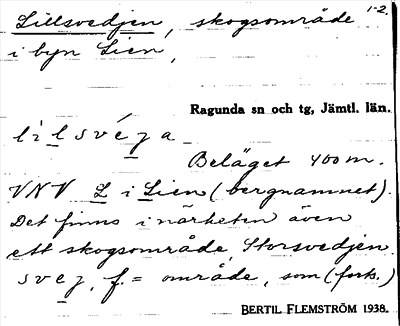 1-2.
Lillsvedjen, skogsområde
i byn Lien,
Ragunda sn och tg, Jämtl. län.
lìlsvéʒa
Beläget 400 m.
VNV L i Lien (bergnamnet).
Det finns i närheten även
ett skogsområde, Storsvedjen
sveʒ, f. = område, som (forts.)
BERTIL FLEMSTRÖM 1938.